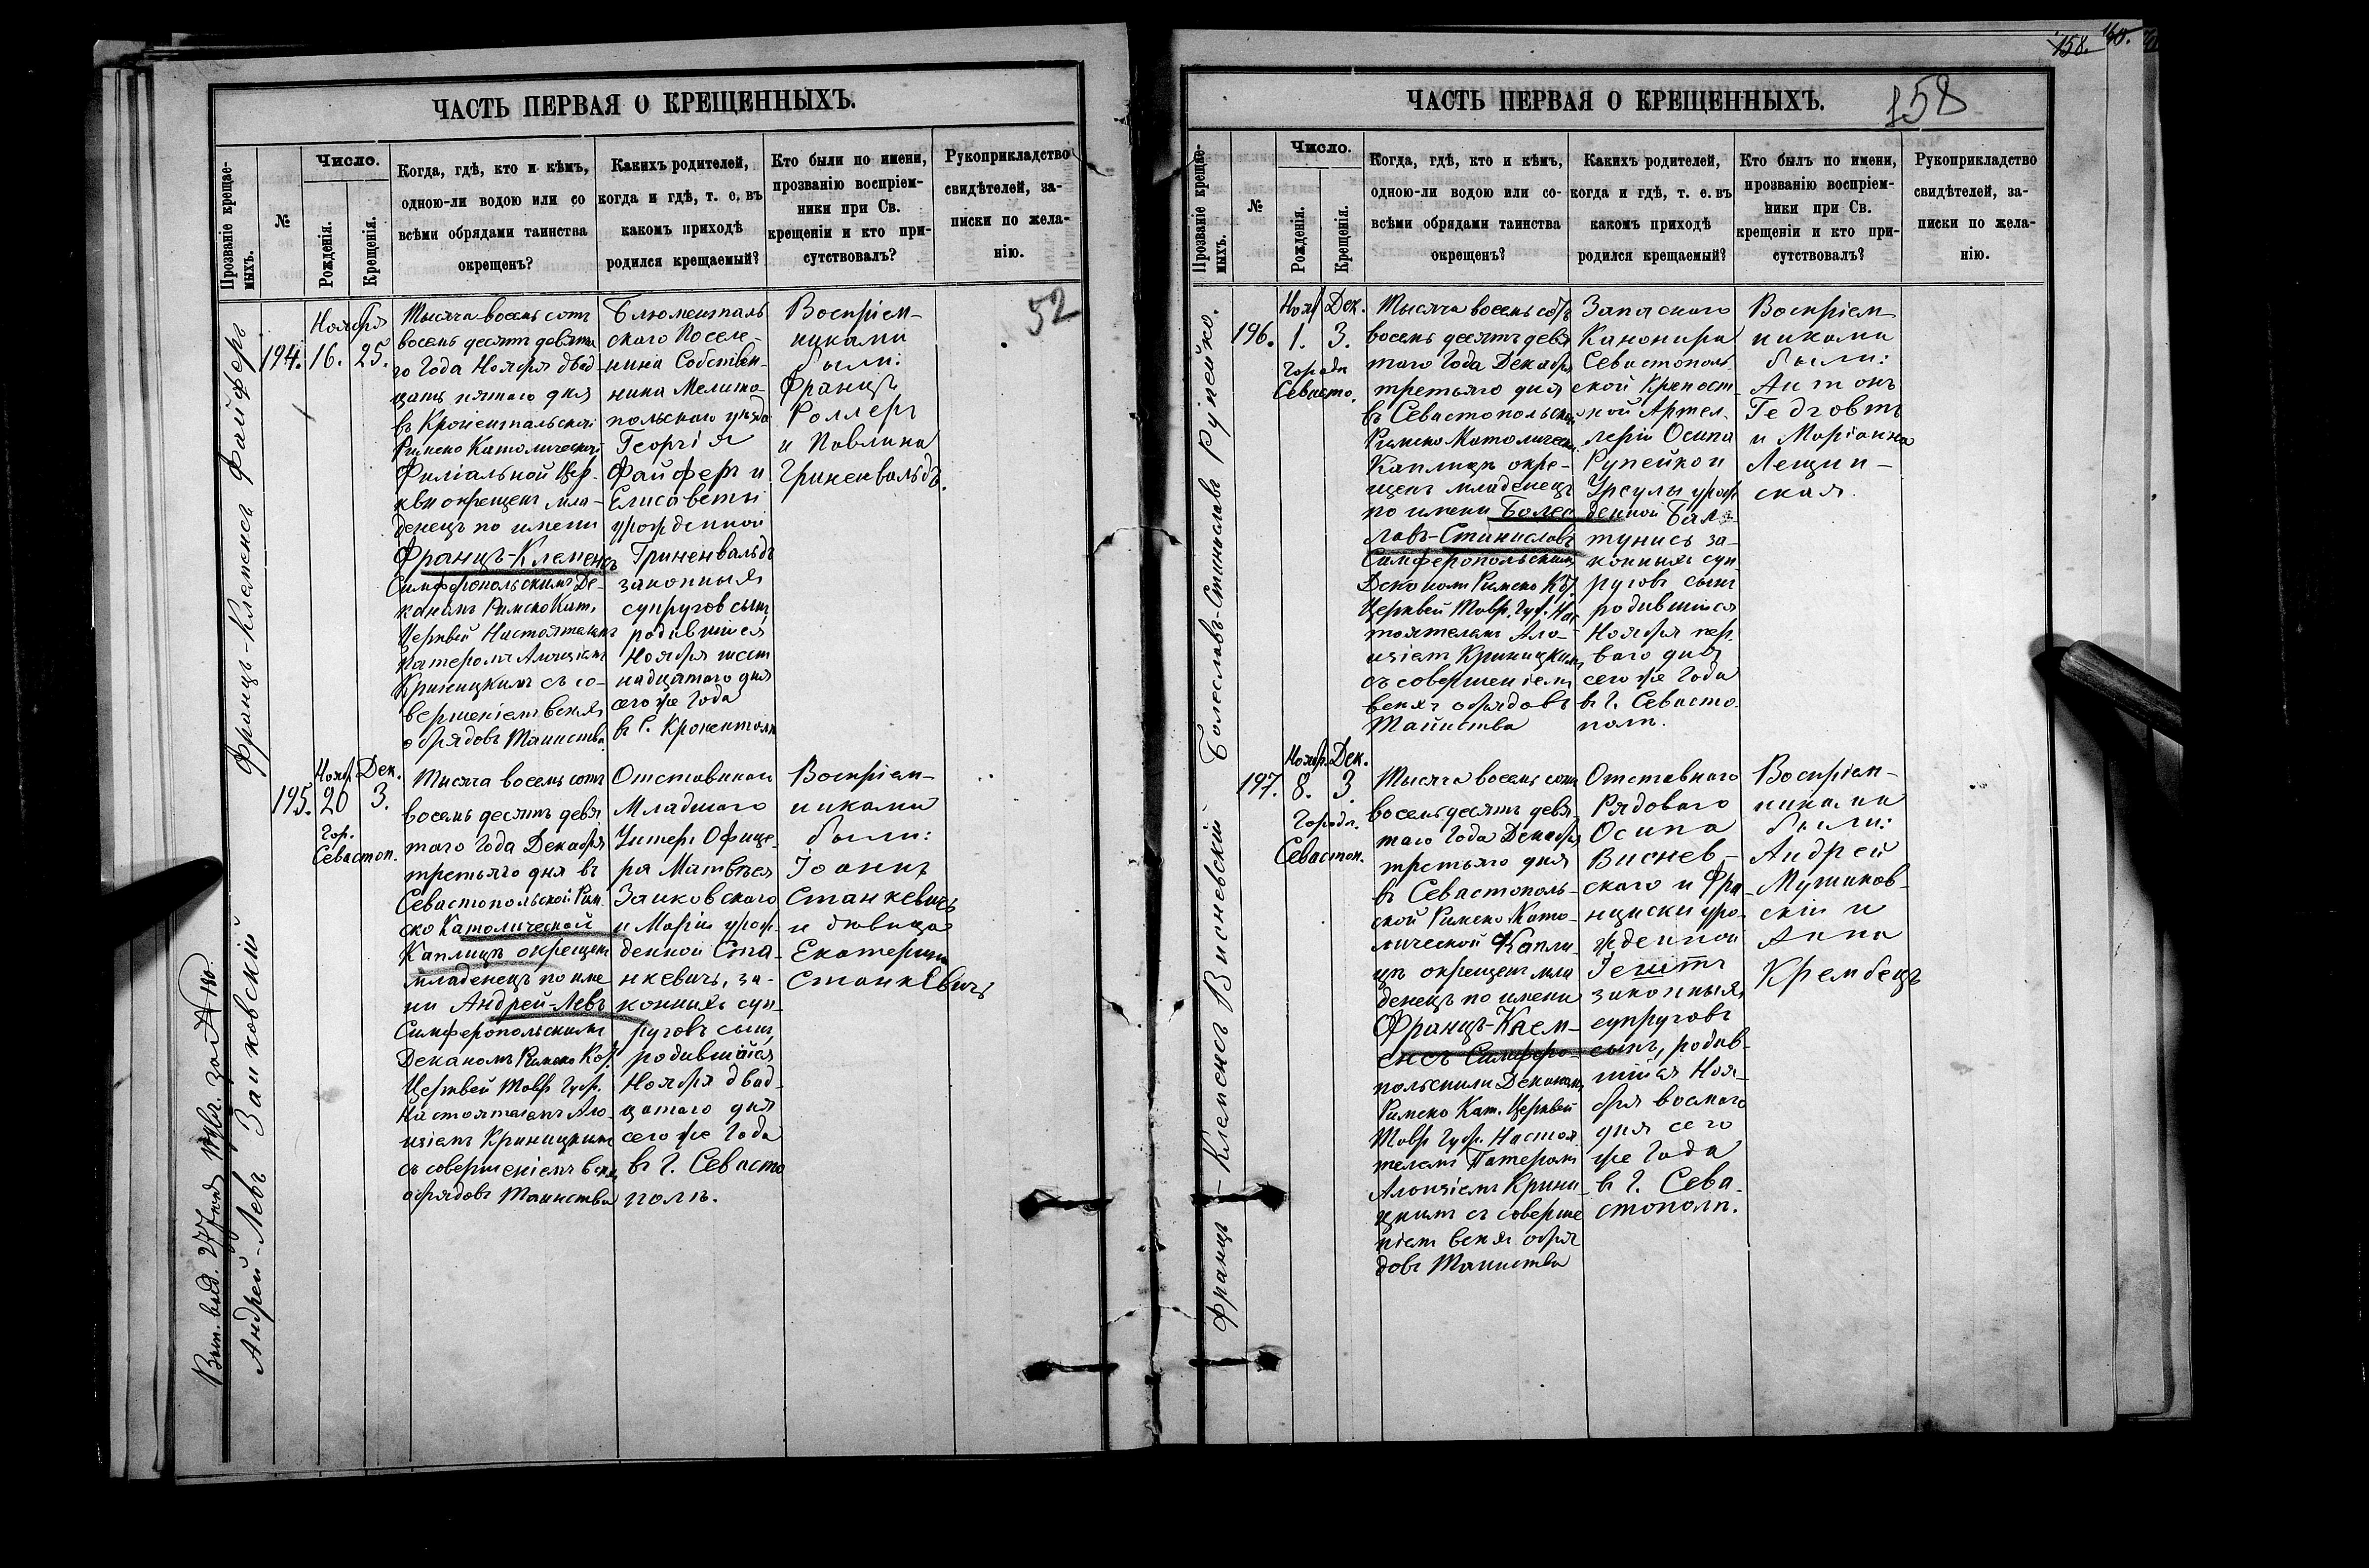 ЧАСТЬ ПЕРВАЯ О КРЕЩЕННЫХЪ.
Прозваніе крещае-
мыхъ.
№
Число.
Рожденія.
Крещенія.
Когда, гдѣ, кто и кѣмъ,
одною-ли водою или со
всѣми обрядами таинства
окрещенъ?
Какихъ родителей,
когда и гдѣ, т. е. въ
какомъ приходѣ
родился крещаемый?
Кто были по имени,
прозванію воспріем-
ники при Св.
крещеніи и кто при-
сутствовалъ?
Рукоприкладство
свидѣтелей, за-
писки по жела-
нію.
52
Францъ-Клеменсъ Файферъ
194.
Ноября
16. 25.
Тысяча восемь сотъ
восемь десятъ девята
го Года Ноября двад
цать пятаго дня
въ Кронентальской
Римско Католической
Филіальной Цер-
кви окрещенъ мла-
денецъ по имени
Францъ-Клеменсъ
Симферопольскимъ Де-
каномъ Римско Кат.
Церквей Настоятелемъ
Патеромъ Алоизіемъ
Криницкимъ съ со-
вершеніемъ всѣхъ
обрядовъ Таинства.
Блюменталь
скаго Поселе-
нина Собствен-
ника Мелито-
польскаго уѣзда
Георгія
Файферъ и
Елисаветы
урожденной
Гриненвальдъ
законныхъ
супруговъ сынъ,
родившійся
Ноября шест
надцатаго дня
сего же Года
въ С. Кроненталѣ
Воспріем-
никами
были:
Францъ
Роллеръ
и Павлина
Гриненвальдъ.
Андрей-Левъ Заиковскій
195.
Нояб. Дек.
20 3.
Гор.
Севастоп.
Тысяча восемь сотъ
восемь десятъ девя
таго Года Декабря
третьяго дня въ
Севастопольской Рим-
ско Католической
Каплицѣ окрещенъ
младенецъ по име
ни Андрей-Левъ
Симферопольскимъ
Деканомъ Римско Кат.
Церквей Тавр. Губ.
Настоятелемъ Ало-
изіемъ Криницкимъ
съ совершеніемъ всѣхъ
обрядовъ Таинства
Отставнаго
Младшаго
Унтеръ Офице-
ра Матвѣя
Заиковскаго
и Маріи урож-
денной Ста-
нкевичъ, за-
конныхъ суп-
руговъ сынъ,
родившійся
Ноября двад-
цатаго дня
сего же Года
въ Г. Севасто
полѣ.
Воспріем-
никами
были:
Іоаннъ
Станкевичъ
и дѣвица
Екатерина
Станкевичъ
ЧАСТЬ ПЕРВАЯ О КРЕЩЕННЫХЪ.
158
158.
Прозваніе крещае-
мыхъ.
№
Число.
Рожденія.
Крещенія.
Когда, гдѣ, кто и кѣмъ,
одною-ли водою или со-
всѣми обрядами таинства
окрещенъ?
Какихъ родителей,
когда и гдѣ, т. е. въ
какомъ приходѣ
родился крещаемый?
Кто былъ по имени,
прозванію воспріем-
ники при Св.
крещеніи и кто при-
сутствовалъ?
Рукоприкладство
свидѣтелей, за-
писки по жела-
нію.
Болеславъ-Станиславъ Рупейко.
196.
Нояб Дек.
1. 3.
Города
Севасто.
Тысяча восемь сотъ
восемь десятъ девя
таго Года Декабря
третьяго дня
въ Севастопольской
Римско Католической
Каплицѣ окре-
щенъ младенецъ
по имени Болес
лавъ-Станиславъ
Симферопольскимъ
Деканомъ Римско Кат.
Церквей Тавр. Губ. Нас
тоятелемъ Ало-
изіемъ Криницкимъ
съ совершеніемъ
всѣхъ обрядовъ
Таинства
Запаснаго
Канонира
Севастополь
ской Крѣпост
ной Артил-
леріи Осипа
Рупейко и
Урсулы урож
денной
законныхъ суп
руговъ сынъ
родившійся
Ноября пер-
ваго дня
сего же Года
въ Г. Севасто-
полѣ.
Воспріем-
никами
были:
Антонъ
Гедговтъ
и Маріанна
Лещин-
ская.
Францъ-Клеменсъ Висневскій
197.
Нояб. Дек.
8. 3.
Города.
Севастоп.
Тысяча восемь сотъ
восемьдесятъ девя
таго Года Декабря
третьяго дня
въ Севастополь-
ской Римско Като-
лической Капли
цѣ окрещенъ мла
денецъ по имени
Францъ-Клем-
енсъ Симферо-
польскимъ Деканомъ
Римско Кат. Церквей
Тавр Губ. Настоя
телемъ Патеромъ
Алоизіемъ Крини-
цкимъ съ соверше
ніемъ всѣхъ обря
довъ Таинства
Отставнаго
Рядоваго
Осипа
Виснев-
скаго и Фра-
нциски уро-
жденной
законныхъ
супруговъ
сынъ, родив-
шійся Ноя-
бря восмаго
дня сего
же Года
въ Г. Сева-
стополѣ.
Воспріем-
никами
были:
Андрей
Мушинов-
скій и
Анна
Крембецъ